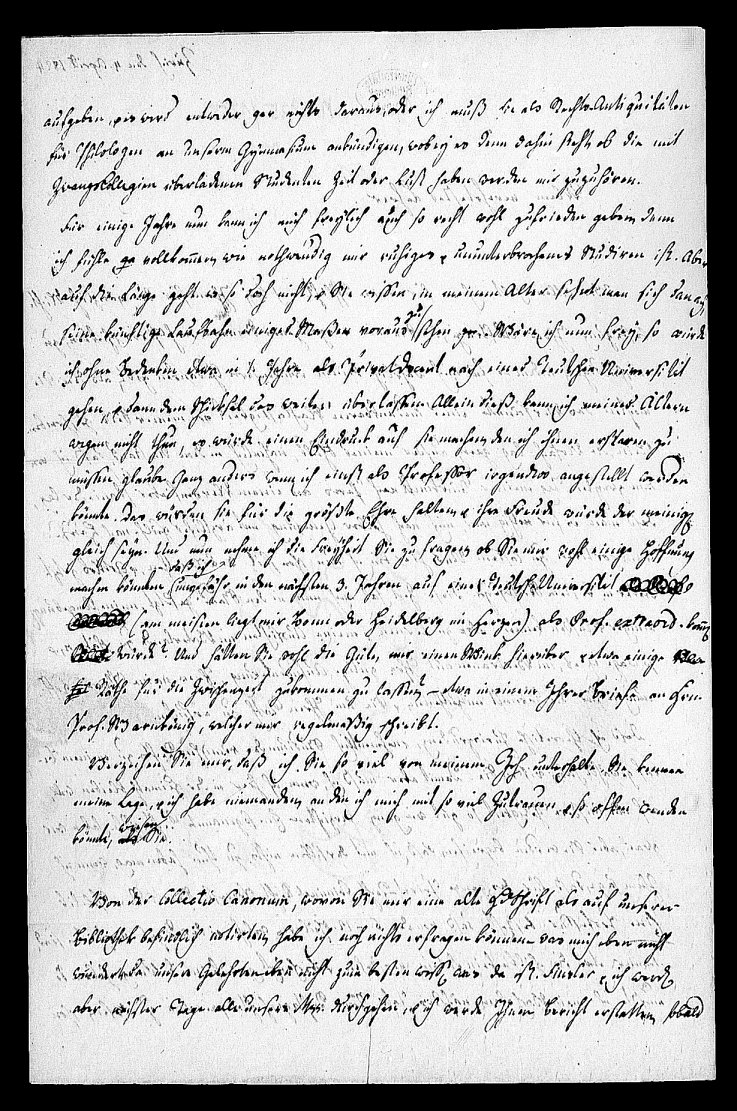 aufgeben, es wird entweder gar nichts daraus, oder ich muß sie als Rechts-Antiquitäten
für Philologen an unserm Gymnasium ankündigen, wobey es denn dahin steht ob die mit
Zwangscollegien überladenen Studenten Zeit oder Lust haben werden mir zuzuhören.
Für einige Jahre nun kann ich mich freylich auch so recht wohl zufrieden geben, denn
ich fühle ga vollkommen, wie nothwendig mir ruhiges u ununterbrochenes Studiren ist. Aber
auf die Länge geht es so doch nicht, u Sie wissen, in meinem Alter sehnt man sich darnach,
seine künftige Laufbahn einiges Maßen voraus zu sehen. Wäre ich nun frey, so würde
ich ohne Bedenken etwa in 1. Jahre als Privatdocent nach einer Teutschen Universität
gehen, u dann dem Schicksal das weitere überlassen. Allein dieß kann ich meiner Ältern
wegen nicht thun, es würde einen Eindruck auf sie machen, den ich ihnen ersparen zu
müssen glaube. Ganz anders wenn ich einst als Professor irgendwo angestellt werden
könnte. Das würden sie für die größte Ehre halten, u ihre Freude würde der meinigen
gleich seyn. Und nun nehme ich die Freyheit Sie zu fragen, ob Sie mir wohl einige Hoffnung
machen könnten, daß ich ungefähr in den nächsten 3. Jahren auf einer Teutschen Universität
(am meisten liegt mir Bonn oder Heidelberg im Herzen) als Prof. extraord.
würde? Und hätten Sie wohl die Güte, mir einen Wink hierüber, u etwa einige
Räthe für die Zwischenzeit zukommen zu lassen, – etwa in einem Ihrer Briefe an Hrn.
Prof. Warnkönig, welcher mir regelmäßig schreibt.
Verzeihen Sie mir, daß ich Sie so viel von meinem Ich unterhalte. Sie kennen
meine Lage, u ich habe niemanden, an den ich mich mit so viel Zutrauen u so offen wenden
könnte, wie an Sie.
Von der Collectio Canonum, wovon Sie mir eine alte Hdschrift als auf unserer
Bibliothek befindlich notirten, habe ich noch nichts erfragen können, was mich eben nicht
wundert, da unsere Gelehrten eben nicht zum besten wissen was da ist. ich werde
aber nächster Tage alle unsere Mss. durchgehen, u ich werde Ihnen Bericht erstatten, sobald